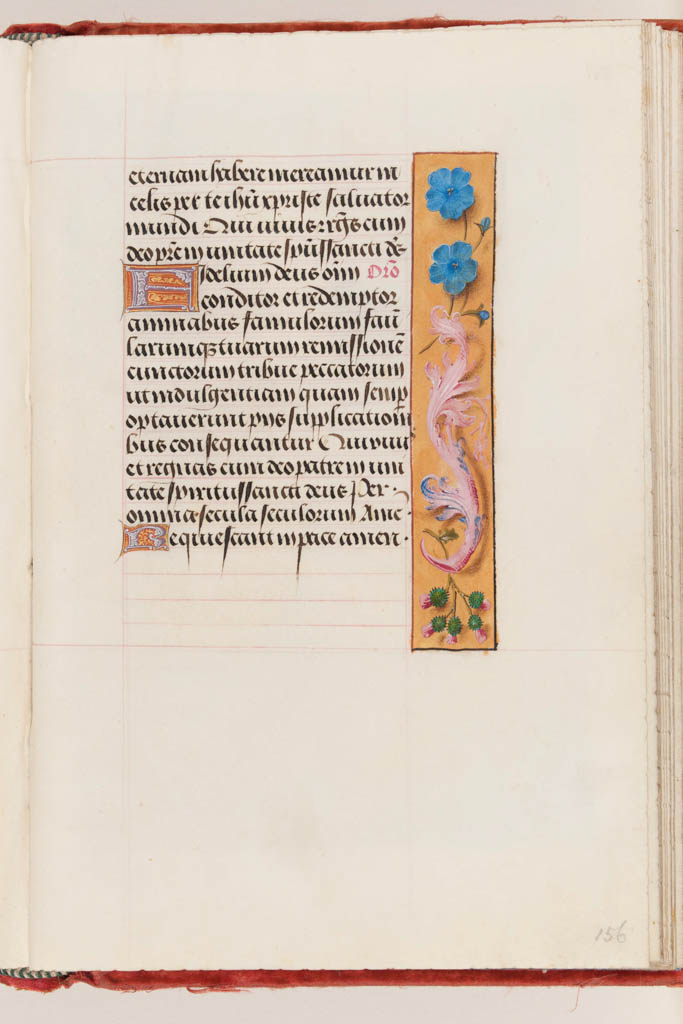 eternam habere mereamur in
celis per te ihū xpriste saluator
mundi Qui uiuis regͣs cum
deo pr̄e in unitate sp̄ussancti dꝰs
Fidelium deus om̄ Orō
conditor et redemptor
animabus famulorum fāu
larumqꝫ tuarum remissionē
cunctorum tribue peccatorum
ut indulgentiam quam semp̱
optauerunt pijs supplicationi
bus consequantur Qui uiuis
et regnas cum deo patre in uni
tate spiritussancti deus Per
omnia secula seculorum Amē
Requiescant in pace amen
156